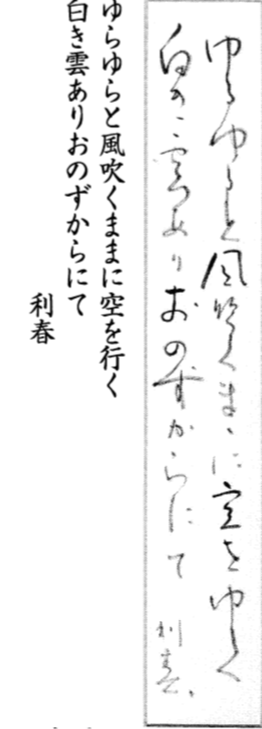 ゆらゆらと風吹くまゝに空をゆく
白き雲ありおのずからにて 利春
ゆらゆらと風吹くままに空を行く
白き雲ありおのずからにて
利春